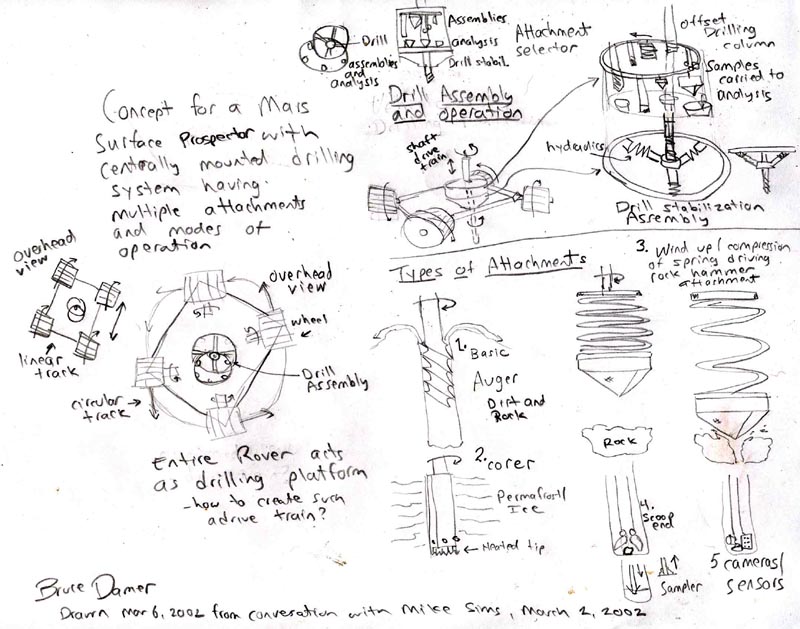 Concept for a Mars
Surface Prospector with
centrally mounted drilling
system having
multiple attachments
and modes of
operation
Drill
assemblies
and
analysis
Assemblies
analysis
Drill stabil.
Attachment
selector
offset
Drilling
column
Samples
carried to
analysis
Drill Assembly
and operation
shaft
drive
train
hydraulics
Drill stabilization
Assembly
overhead
view
linear
track
overhead
view
wheel
Drill
Assembly
circular
track
Entire Rover acts
as drilling platform
- how to create such
a drive train?
Types of Attachments
1. Basic
Auger
Dirt and
Rock
2. corer
Permafrost/
Ice
Heated tip
3. Wind up/compression
of spring driving
rock hammer
attachment
Rock
4.
Scoop
end
Sampler
5 cameras/
sensors
Bruce Damer
Drawn Mar 6, 2002 from converation with Mike Sims, March 2, 2002